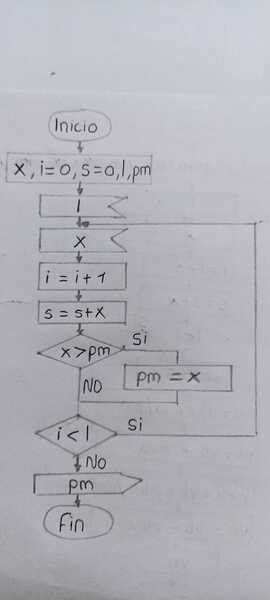 Inicio
x, i=0, s=0, l, pm
l
x
i = i+1
s = s+x
x>pm Si
pm = x
NO
i<l Si
NO
pm
Fin